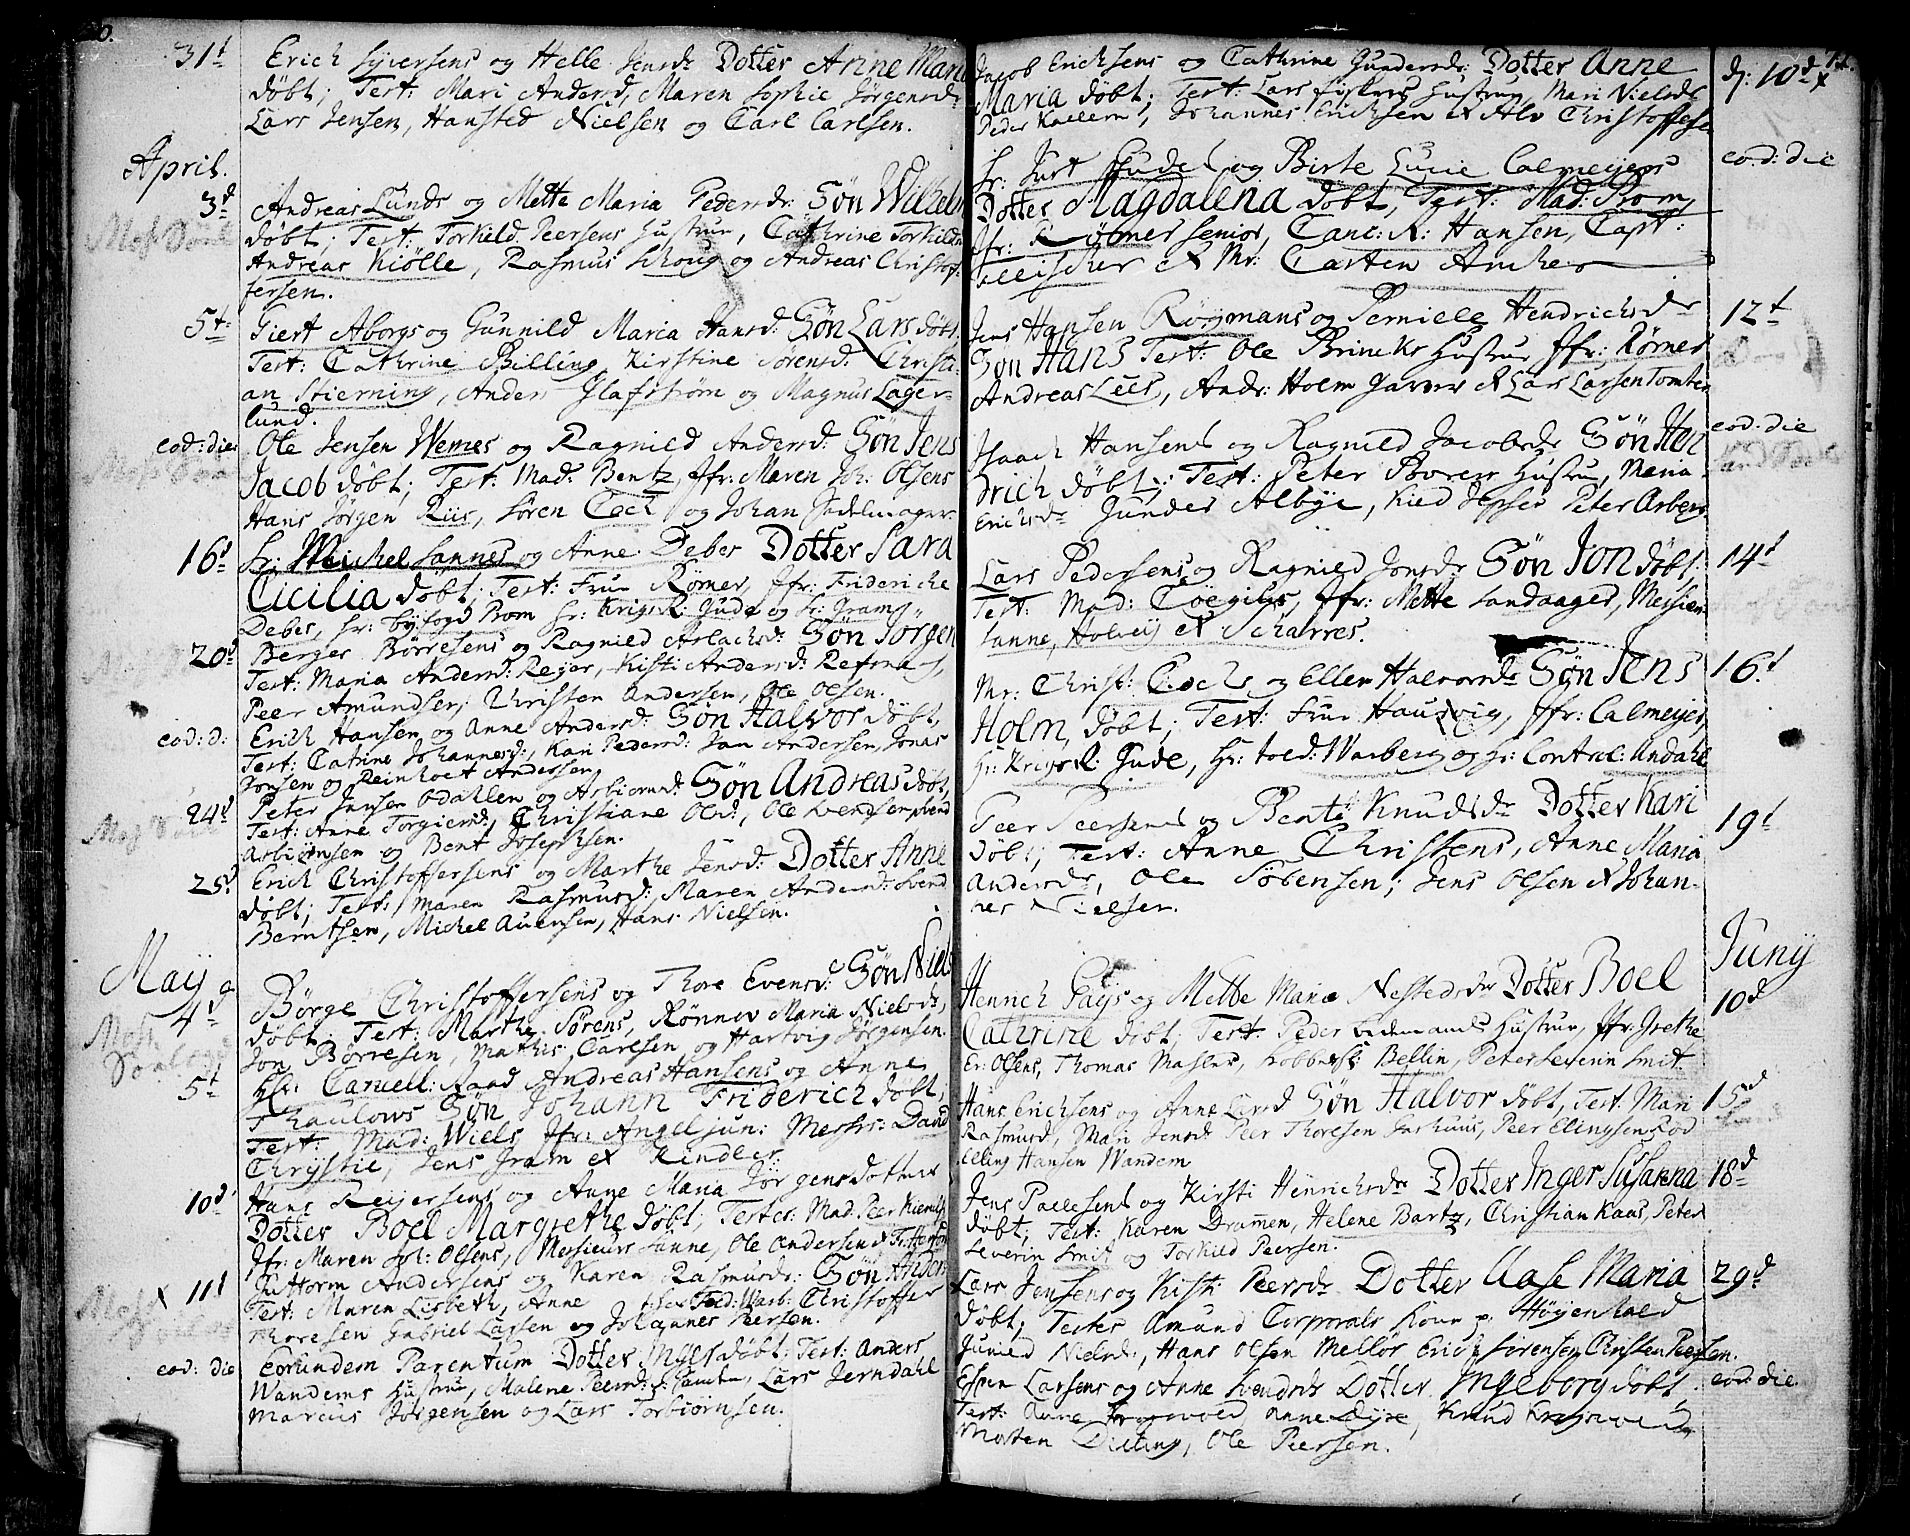 31t Erich Syversens og Helle Jensdr Dotter Anne Marie
døbt; Test: Mari Andersd, Maren Sophie Jørgensd:
Lars Jensen, Hansted Nielsen og Carl Carlsen.
April.
3d Andreas Lunds og Mette Maria Pedersdr: Søn Wilhelm
døbt; Test: Torkild Peersens Hustrue, Cathrine Torkilds
Andreas Kiölle, Rasmus Schoug og Andreas Christof-
fersen.
5t Giert Aborgs og Gunnild Maria Hansd: Søn Lars døbt,
Test: Cathrine Billing, Kirstine Sørensd: Christi-
an Stierning, Anders Glafstrøm og Magnus Lager-
lund.
eod: die Ole Jensen Wernes og Ragnild Andersd: Søn Jens
Jacob døbt; Test: Mad: Bentz, Jfr: Maren Joh: Olsens
Hans Jørgen Riis, Søren Cock og Johan Sadelmager.
16d Hr: Meichel Sannes og Anne Debes Dotter Sara
Cicilia døbt; Test: Frue Rømer, Jfr: Frideriche
Debes, Hr: byfogd Prom Hr: Krigsr: Gude og Hr: Gram,
20d Berger Børresens og Ragnild Aslachsd: Søn Jørgen
Test: Maria Andersd: Rejer, Kisti Andersd: Refsnes,
Peer Amundsen, Christen Andersen, Ole Olsen.
eod: d: Erich Hansen og Anne Andersd: Søn Halvor døbt,
Test: Catrine Johannesd:, Kari Pedersd: Jan Andersen, Jonas
Jonsen og Reinholt Anderssen
24d Peter Jansen Odahlen og Asbiørnsd: Søn Andreas døbt,
Test: Anne Torgiersd:, Christiane Olsd:, Ole Svendsen, Svend
Asbiörnsen og Bent Josephsen.
25d Erich Christoffersens og Marthe Jensd: Dotter Anne
døbt; Test: Maren Rasmusd: Maren Andersd: Svend
Berntsen, Michel Auensen, Hans Nielsen.
May
4d Börge Christoffersens og Thore Evensd: Søn Niels
døbt; Test: Marthe Sörens, Rønnev Maria Nielsdr,
Jon Børresen, Mathis Carlsen og Hartvig Jørgensen.
5t Hr: Cancell: Raad Andreas Hansens og Anne
Thaulows Søn Johann Friderich døbt;
Test: Mad: Wiels, Jfr: Angel jun: Messrs: David
Chrystie, Jens Gram et Kindler.
10d Hans Reijersens og Anne Maria Jørgensdotter
Dotter Boel Margrethe døbt; Testes: Mad: Peer
Jfr: Maren Joh: Olsens, Messieurs Sanne, Ole Andersen &
x 11t Guttorm Andersens og Karen Rasmusdr: Søn Anders
Test: Maren Lisbeth, Anne hos Told: Warb: Christoffer
Thoresen Gabriel Lassen og Johannes Peersen.
eod: die Eorundem Parentum Dotter Inger døbt; Test: Anders
Wandems Hustrue, Malene Peersd: Lars Jerndahl
Marcus Jørgensen og Lars Torbiørnsen.
Jacob Erichsens og Cathrine Gundersdr: Dotter Anne d: 10d x
Maria døbt; Test: Lars fiskers Hustrue, Mari Nielsdr
Peder Kaellem, Johannes Erichsen & Alv Christoffersen
Hr: Jurt Gudes og Birte Lucie Calmeyers eod: die
Dotter Magdalena døbt, Test: Mad: Prom,
Jfr: Rømer senior, Canc: R: Hansen, Capt:
& Mr: Carten Ancher
Jens Hansen Røymans og Pernille Hendrichsdr 12t
Søn Hans Test: Ole Brincks Hustrue Jfr: Rømer
Andreas Lies, Ands: Holm garver & Lars Larsen Tomter
Isaach Hansens og Ragnild Jacobsdr Søn Hen eod: die
drich døbt; Test: Peter Povers Hustrue, Maria
Erichsdr Gunder Albye, Kield Jepsen Peter Asbers
Lars Pedersens og Ragnild Jonsdr Søn Jon døbt. 14d
Test: Mad: Jfr: Mette Sandaager, Messieurs
Sanne, Holveij et Scharres.
Mr: Christ: Cocks og Ellen Halvorsdr Søn Jens 16d
Holm, døbt; Test: Frue Hausvig, Jfr: Calmeyer,
Hr: Krigsr: Gude, Hr: told: Warberg og Hr: Control: Andahl
Peer Peersens og Bente Knudsdr Dotter Kari 19d
døbt; Test: Anne Christens, Anne Maria
Andersdr, Ole Sørensen; Jens Olsen & Johan-
nes Nielsen.
Juny
Henrich Pays og Mette Maria Nestedsdr Dotter Boel 10d
Cathrine døbt; Test: Peder bedemands Hustrue, Jfr: Grethe
Er: Olsens, Thomas Bellin, Peter Severin Smit.
Hans Erichsens og Anne Larsd Søn Halvor døbt, Test: Mari 15d
Rasmusd, Mari Jensdr Peer Thoresen Peer Elingsen
Elling Hansen Wandem
Jens Pallesens og Kirsti Henrichsdr Dotter Inger Susanna 18d
døbt; Test: Karen Drammen, Helene Bartz, Christian Kaas, Peter
Severin Smit og Torkild Peersen.
Lars Jensens og Kisti Peersdr Dotter Aase Maria 29d
døbt; Testes Amund Corporals Kone p: Höyenhald
Gunild Nielsd:, Hans Olsen Melløs Erich Sørensen, Christen Peersen.
Espen Larsens og Anne Svendsdr Dotter Ingeborg døbt eod: die
Test: Anne Krogsvold, Anne Dyre, Knud Krogsvold
Morten Dilling, Ole Peersen.